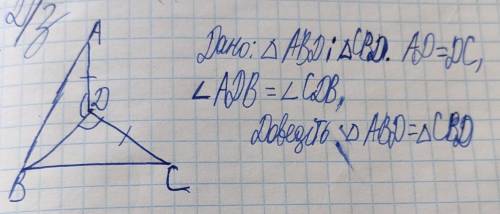 Д/з
A
Дано: △ ABD і △CBD. AD=DC,
D
∠ADB = ∠CDB,
Доведіть: △ ABD=△CBD
B
C